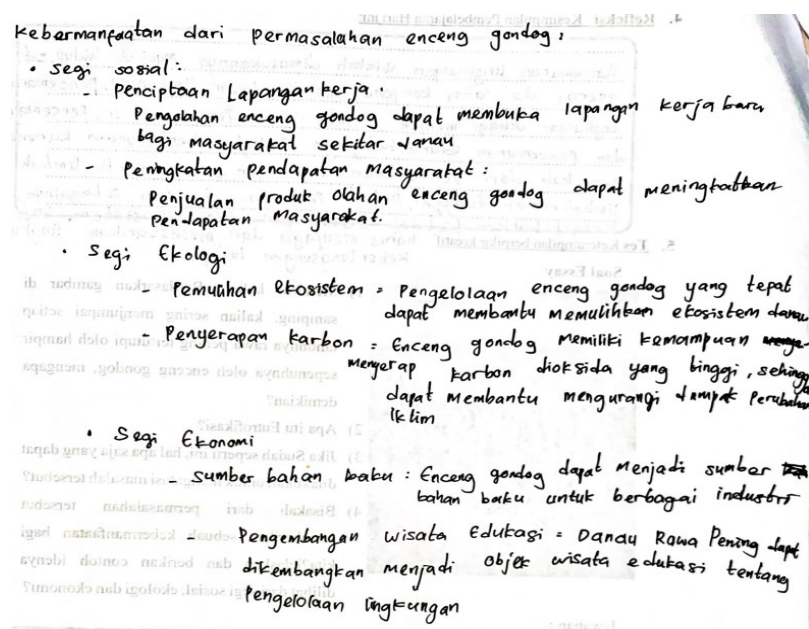 kebermanfaatan dari permasalahan enceng gondog :
• segi sosial :
- Penciptaan Lapangan kerja .
Pengolahan enceng gondog dapat membuka lapangan kerja baru
bagi masyarakat sekitar danau
- Peningkatan pendapatan Masyarakat :
Penjualan produk olahan enceng gondog dapat meningkatkan
pendapatan masyarakat.
• Segi Ekologi
- Pemulihan Ekosistem = Pengelolaan enceng gondog yang tepat
dapat membantu memulihkan ekosistem danau
- Penyerapan karbon = Enceng gondog memiliki kemampuan
menyerap karbon dioksida yang tinggi, sehingga
dapat membantu mengurangi dampak perubahan
Iklim
• Segi Ekonomi
- sumber bahan baku : Enceng gondog dapat menjadi sumber
bahan baku untuk berbagai industri
- Pengembangan wisata Edukasi = Danau Rawa Pening dapt
dikembangkan menjadi objek wisata edukasi tentang
Pengelolaan lingkungan